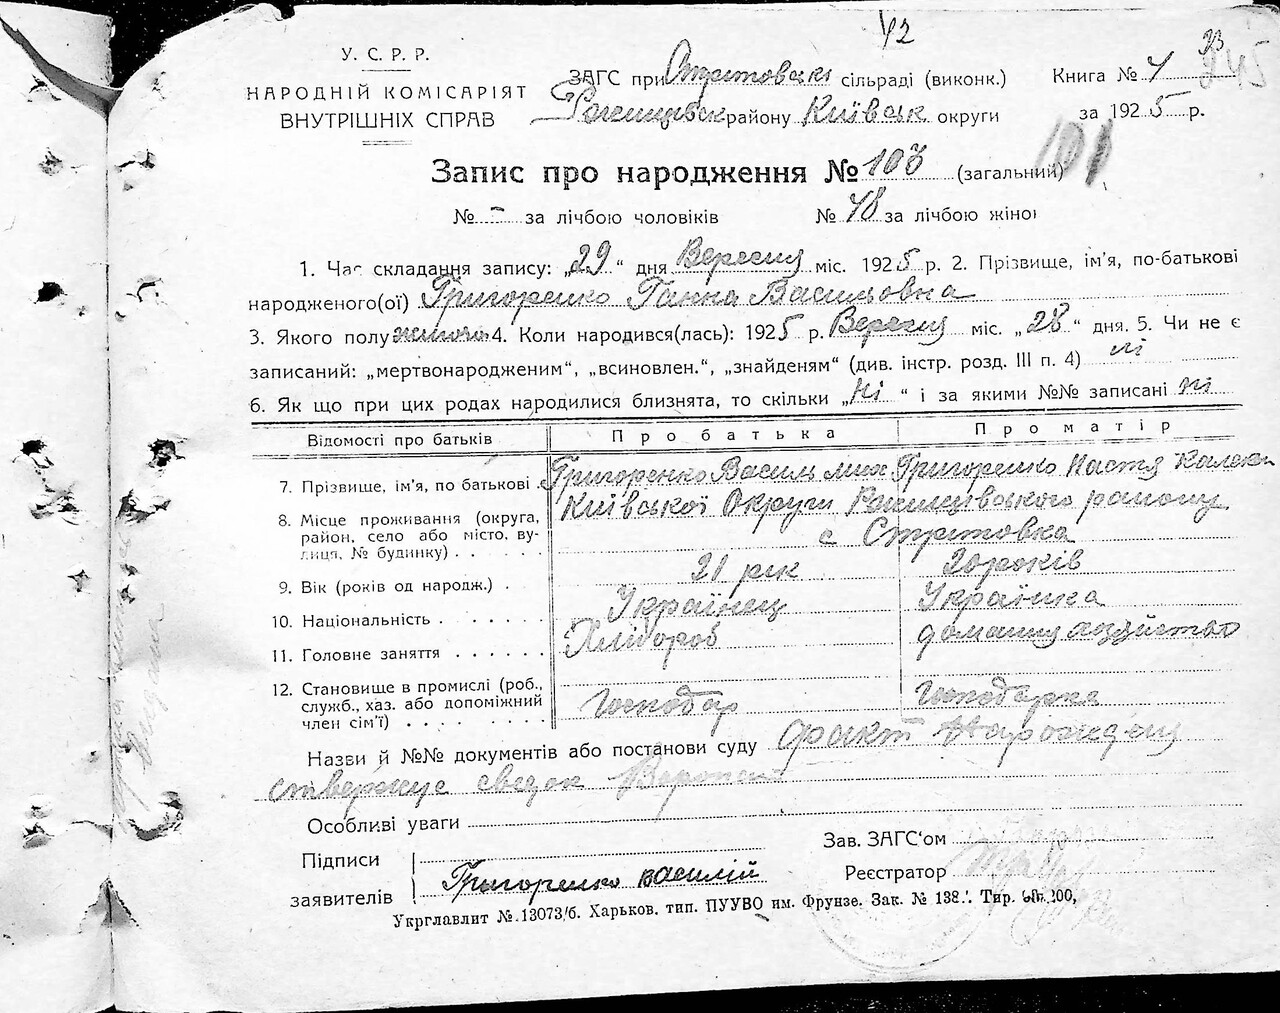 42
У. С. Р. Р.
НАРОДНІЙ КОМІСАРІЯТ
ВНУТРІШНІХ СПРАВ
ЗАГС при Стритовські сільраді (виконк.)
району Київськ округи
Книга № 1
за 1925 р.
Запис про народження № 108 (загальний)
101
№ - за лічбою чоловіків № 48 за лічбою жіно
1. Час складання запису: „29“ дня Вересня міс. 1925 р. 2. Прізвище, ім'я, по-батькові
народженого(ої) Григоренко Ганна Васильовна
3. Якого полу жіночо 4. Коли народився(лась): 1925 р. Вересня міс. „28“ дня. 5. Чи не є
записаний: „мертвонародженим“, „всиновлен.“, „знайденям“ (див. інстр. розд. III п. 4) ні
6. Як що при цих родах народилися близнята, то скільки „Ні“ і за якими №№ записані ні
Відомості про батьків Про батька Про матір
7. Прізвище, ім'я, по батькові Григоренко Василь Мих. Григоренко Настя
8. Місце проживання (округа, район, село або місто, вулиця, № будинку) Київської Округи району
с Стритовка
9. Вік (років од народж.) 21 рік 20 років
10. Національність Українець Українка
11. Головне заняття Хлібороб домашнє хазяйство
12. Становище в промислі (роб., служб., хаз. або допоміжний член сім'ї) Господар Господарка
Назви й №№ документів або постанови суду факт народження
ствержує сведок
Особливі уваги
Зав. ЗАГС'ом
Підписи
заявителів Григоренко василій
Реєстратор
Укрглавлит № 13073/б. Харьков. тип. ПУУВО им. Фрунзе. Зак. № 138 Тир.